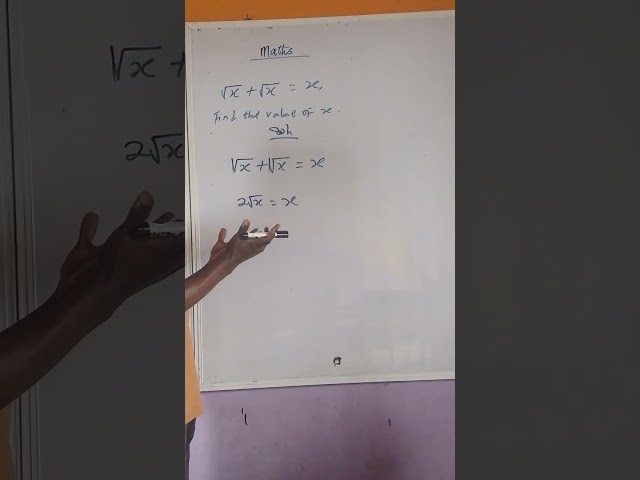 Maths
√x + √x = x,
Find the value of x.
Soln
√x + √x = x
2√x = x